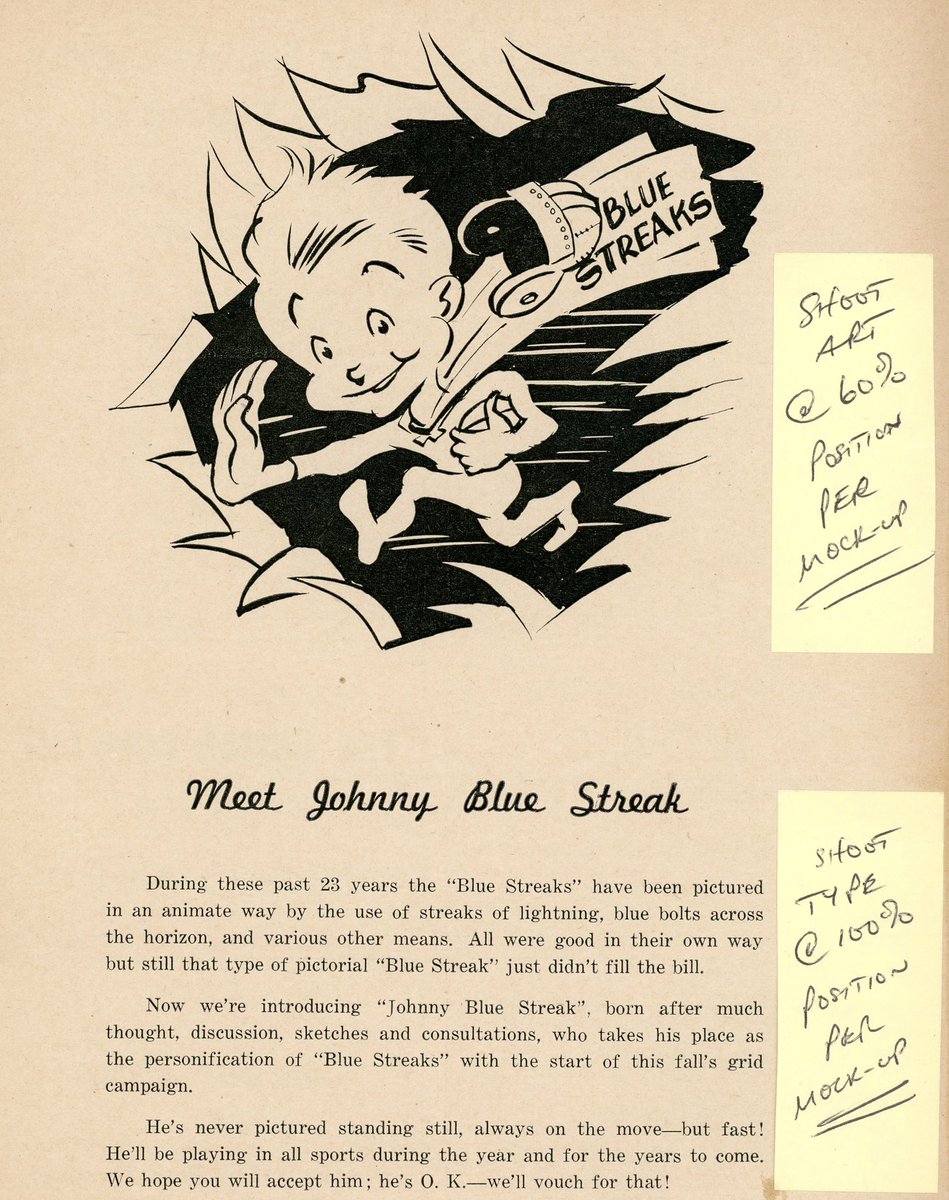 BLUE
STREAKS
SHOOT
ART
@ 60%
POSITION
PER
MOCK-UP
Meet Johnny Blue Streak
During these past 23 years the “Blue Streaks” have been pictured
in an animate way by the use of streaks of lightning, blue bolts across
the horizon, and various other means. All were good in their own way
but still that type of pictorial “Blue Streak” just didn’t fill the bill.
Now we’re introducing “Johnny Blue Streak”, born after much
thought, discussion, sketches and consultations, who takes his place as
the personification of “Blue Streaks” with the start of this fall’s grid
campaign.
He’s never pictured standing still, always on the move—but fast!
He’ll be playing in all sports during the year and for the years to come.
We hope you will accept him; he’s O. K.—we’ll vouch for that!
SHOOT
TYPE
@ 100%
POSITION
PER
MOCK-UP